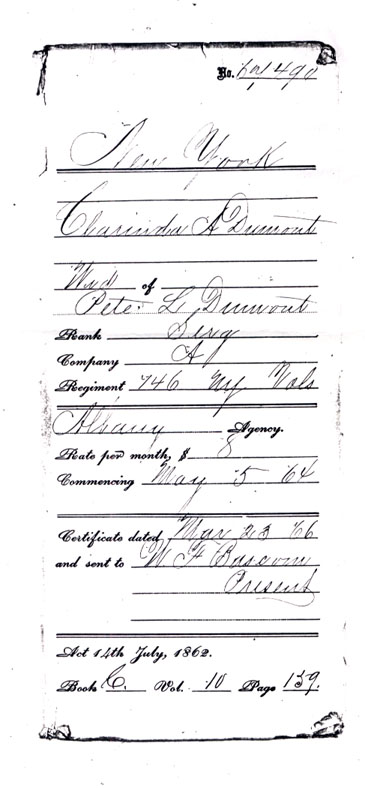 No. 490
New York
Charinda A Dumont
Wid of
Peter L Dumont
Rank Serg
Company A
Regiment 146 Ny Vols
Albany Agency.
Rate per month, $ 8
Commencing May 5 64
Certificate dated Mar 23 66
and sent to W F Bascom
Present
Act 14th July, 1862.
Book C. Vol. 10 Page 139.